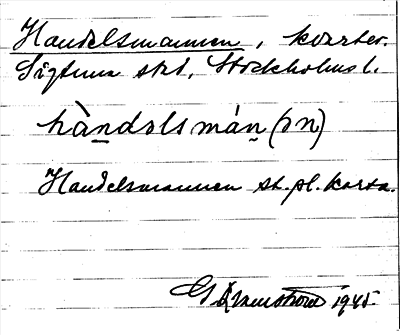 Handelsmannen, kvarter.
Sigtuna stad, Stockholms l.
hàndəlsmán(ən)
Handelsmannen st.pl. karta.
1945